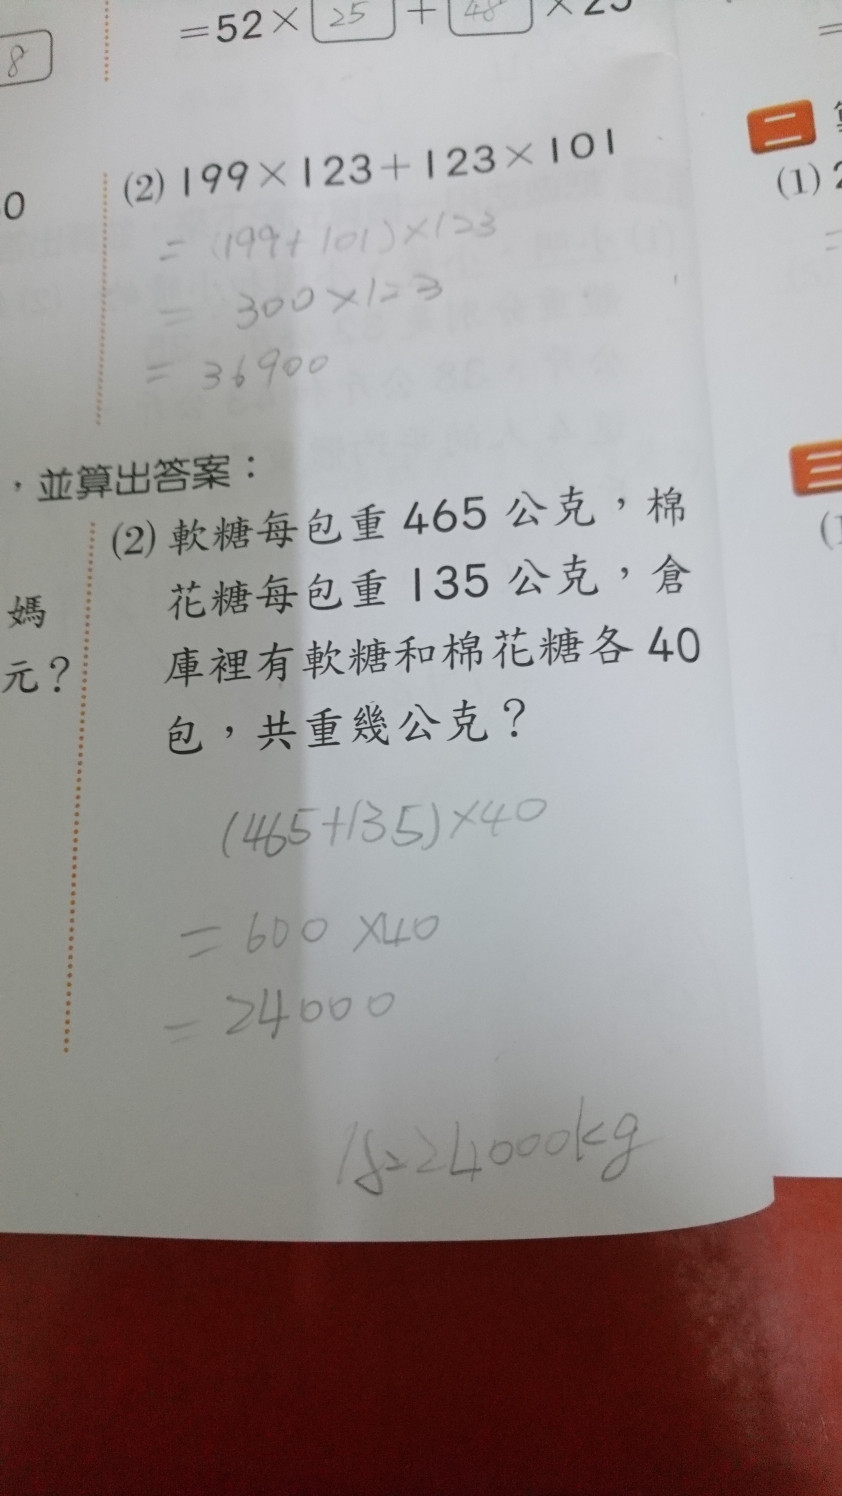 =52×25+48×25
8
(2) 199×123+123×101
0
=(199+101)×123
=300×123
=36900
二
(1) 2
，並算出答案：
三
(2) 軟糖每包重 465 公克，棉
花糖每包重 135 公克，倉
庫裡有軟糖和棉花糖各 40
包，共重幾公克？
媽
元？
(465+135)×40
=600×40
=24000
24000kg